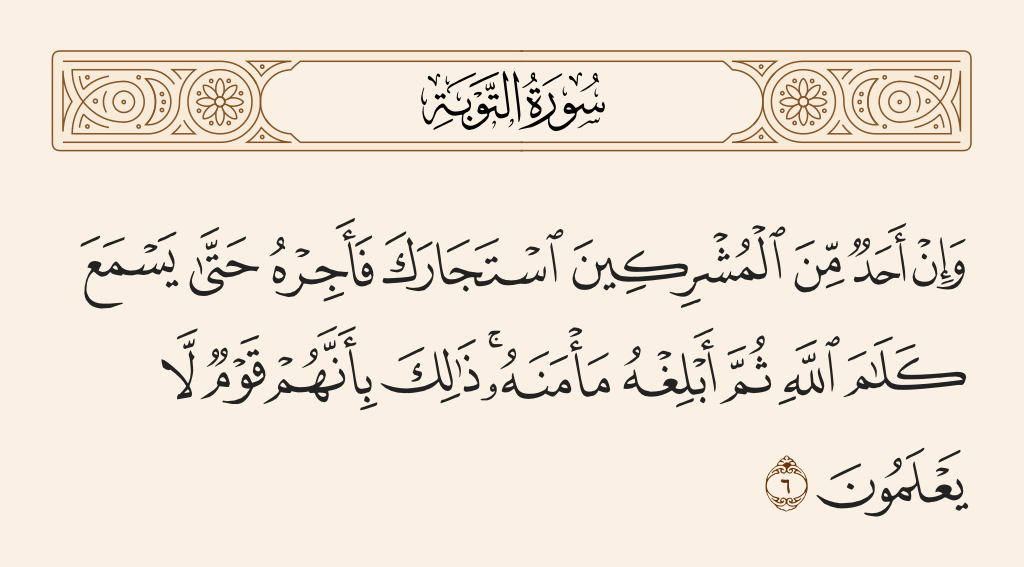 سُورَةُ التَّوْبَةِ
وَإِنْ أَحَدٌ مِّنَ ٱلْمُشْرِكِينَ ٱسْتَجَارَكَ فَأَجِرْهُ حَتَّىٰ يَسْمَعَ
كَلَـٰمَ ٱللَّهِ ثُمَّ أَبْلِغْهُ مَأْمَنَهُۥ ۚ ذَٰلِكَ بِأَنَّهُمْ قَوْمٌ لَّا
يَعْلَمُونَ ٦